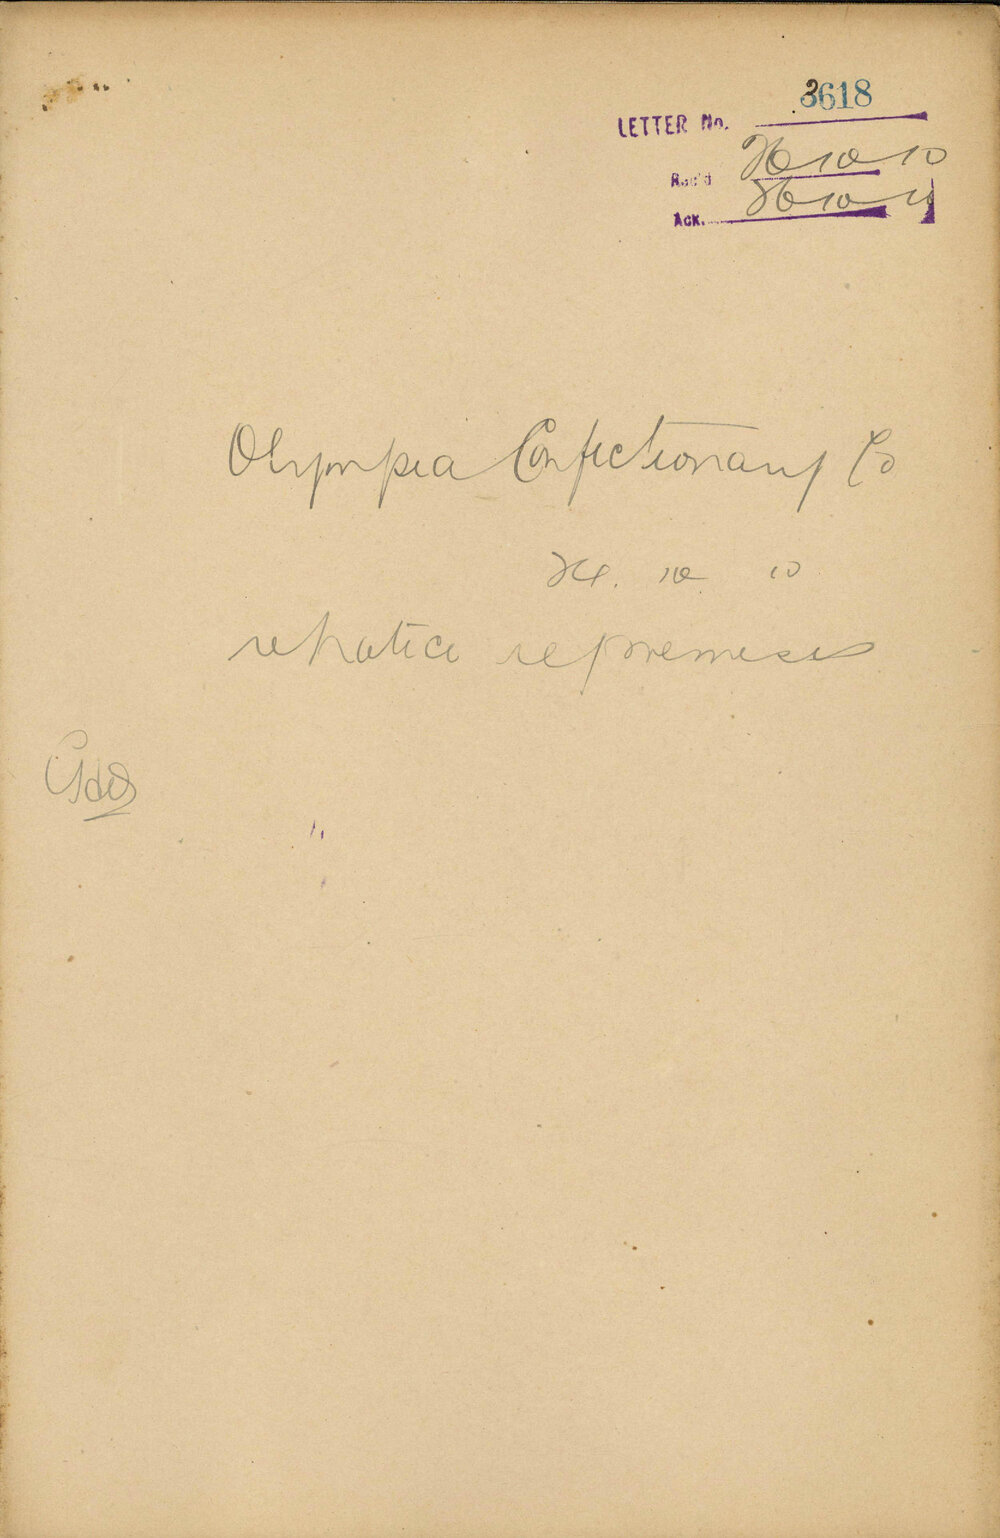 3618
LETTER No.
Rec'd 26 10 10
Ack. 26 10 10
Olympia Confectionary Co
24. 10 10
re notice re premises